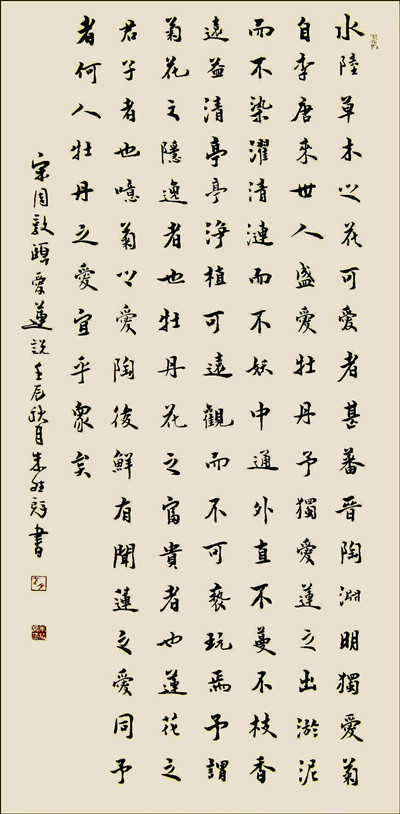 水陸草木之花可愛者甚蕃晉陶渊明獨愛菊
自李唐來世人盛愛牡丹予獨愛蓮之出淤泥
而不染濯清漣而不妖中通外直不蔓不枝香
遠益清亭亭淨植可遠觀而不可褻玩焉予謂
菊花之隱逸者也牡丹花之富貴者也蓮花之
君子者也噫菊之愛陶後鮮有聞蓮之愛同予
者何人牡丹之愛宜乎眾矣
宋周敦頤愛蓮說壬辰秋月朱書